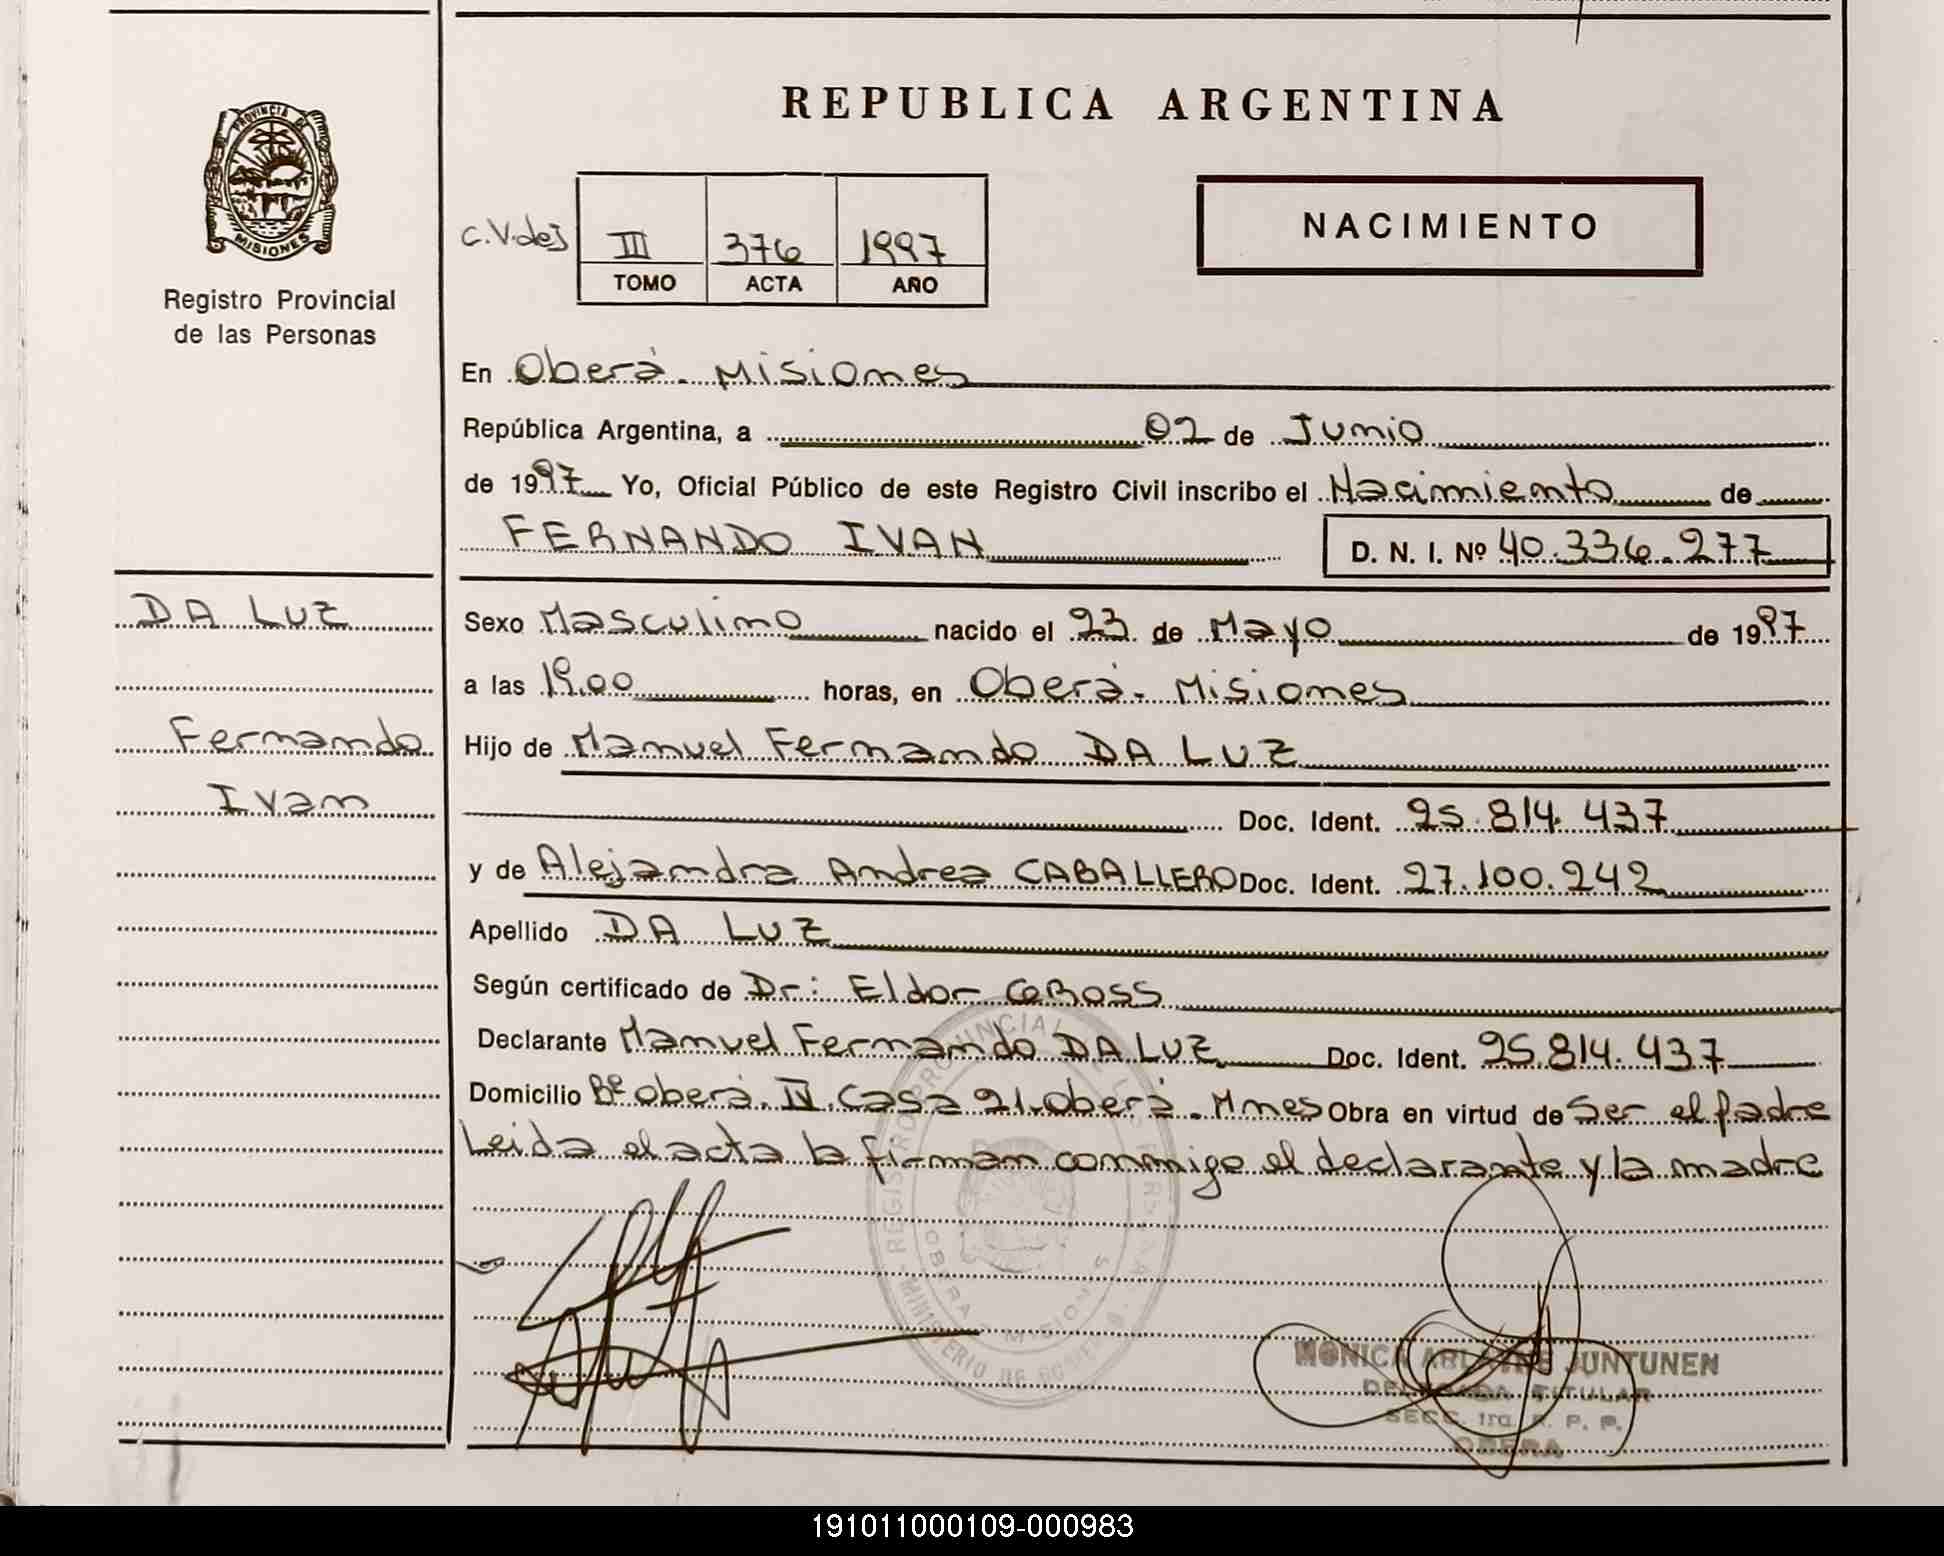 REPUBLICA ARGENTINA
PROVINCIA DE
MISIONES
Registro Provincial
de las Personas
NACIMIENTO
III 376 1997
TOMO ACTA AÑO
En Oberá. Misiones
República Argentina, a 02 de Junio
de 1997 Yo, Oficial Público de este Registro Civil inscribo el Nacimiento de
FERNANDO IVAN D. N. I. Nº 40.336.277
DA LUZ
Fernando
Ivan
Sexo Masculino nacido el 23 de Mayo de 1997
a las 19.00 horas, en Oberá. Misiones
Hijo de Manuel Fernando DA LUZ
Doc. Ident. 25.814.437
y de Alejandra Andrea CABALLERO Doc. Ident. 27.100.242
Apellido DA LUZ
Según certificado de Dr: Eldor
Declarante Manuel Fernando DA LUZ Doc. Ident. 25.814.437
Domicilio Bº Oberá. IV. Casa 21. Oberá. Mnes Obra en virtud de Ser el padre
Leida el acta la firman conmigo el declarante y la madre
MONICA JUNTUNEN
DELEGADA TITULAR
SECC. 1ra. R. P. P.
OBERA
191011000109-000983